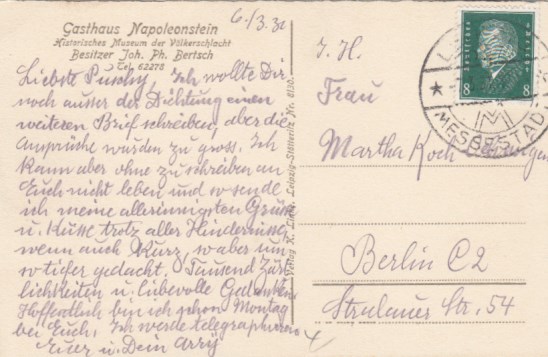 Gasthaus Napoleonstein
Historisches Museum der Völkerschlacht
Besitzer Joh. Ph. Bertsch
Tel. 62278
6./3.31
Liebste Puschy, Ich wollte Dir
noch ausser der Dichtung einen
weiteren Brief schreiben, aber die
Ansprüche wurden zu gross. Ich
kann aber ohne zu schreiben an
Euch nicht leben und so sende
ich meine allerinnigsten Grüsse
u. Küsse trotz aller Hindernisse,
wenn auch kurz, so aber um
so tiefer gedacht. Tausend Zärt
lichkeiten u. liebevolle Gedanken
Hoffentlich bin ich schon Montag
bei Euch. Ich werde telegraphieren
Euer u. Dein
Verlag K. Leipzig-Stötteritz Nr.
I. H.
Frau
Martha Koch
Berlin C2
Stralauer Str. 54
8 8
MESSESTADT
M